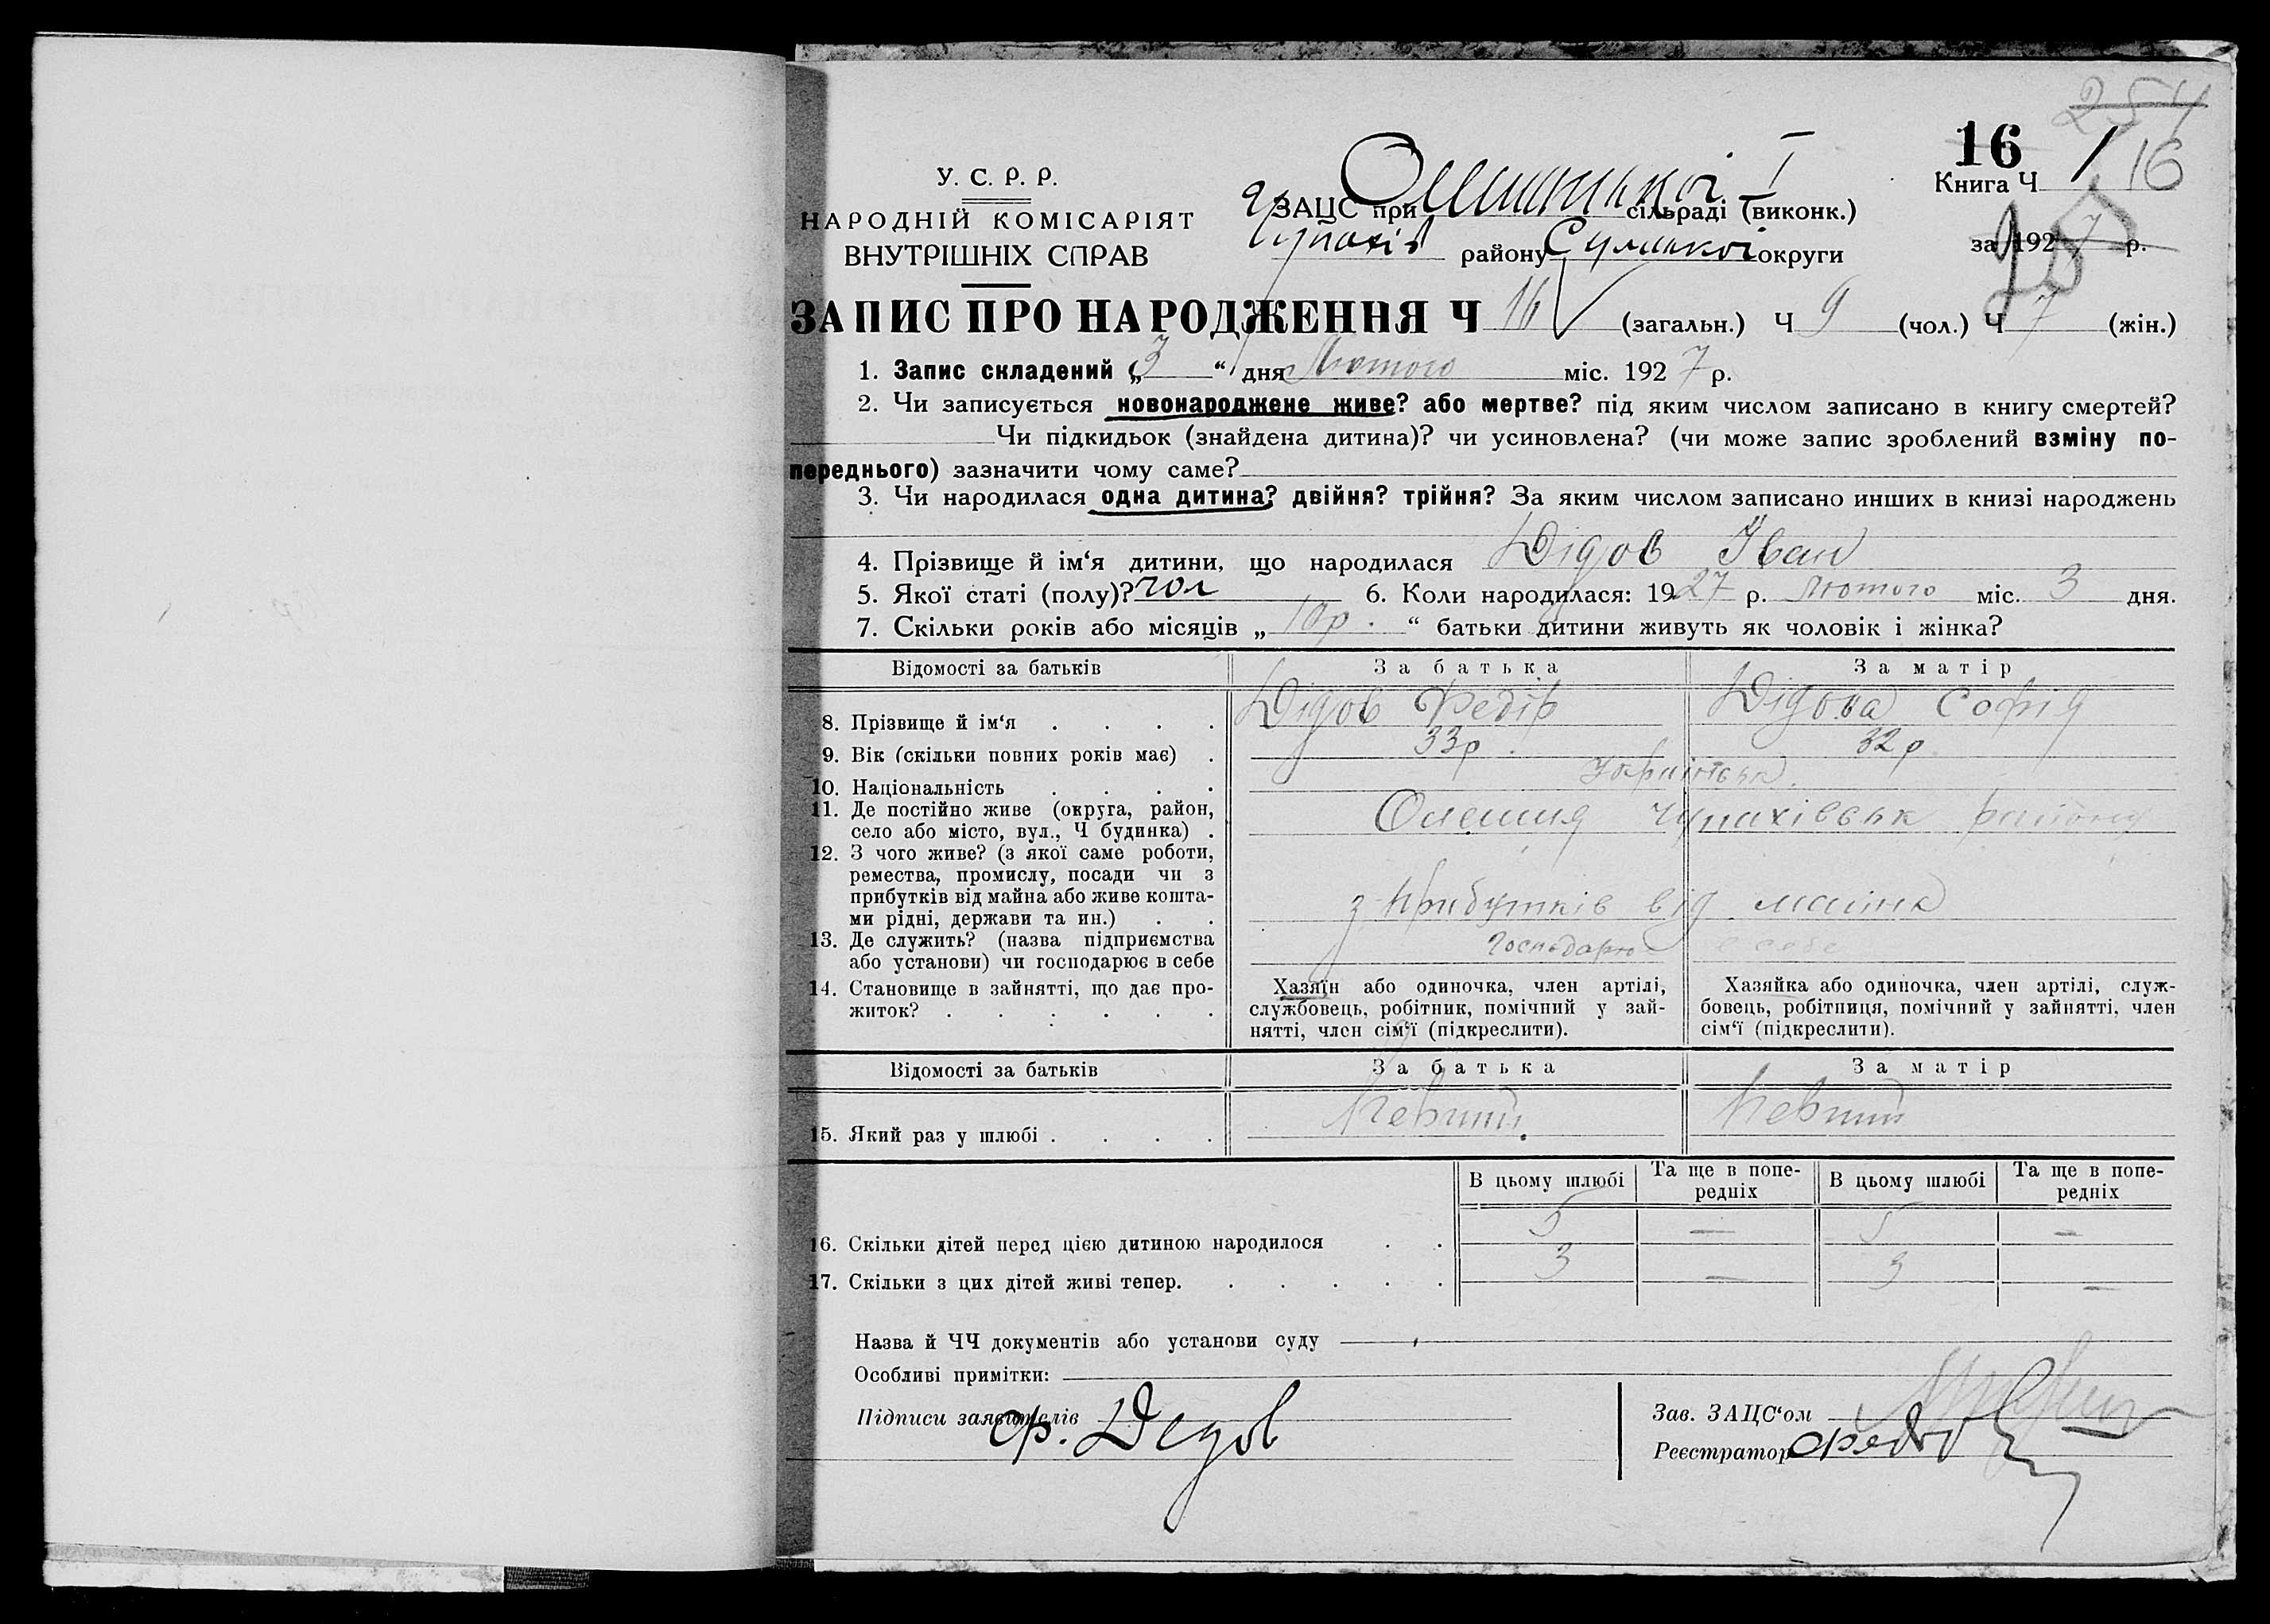 254
16 1/16
У. С. Р. Р.
НАРОДНІЙ КОМІСАРІЯТ
ВНУТРІШНІХ СПРАВ
ЗАЦС при сільраді (виконк.)
Чупахів району Сумської округи
Книга Ч
за 1927 р.
ЗАПИС ПРО НАРОДЖЕННЯ Ч 16 (загальн.) Ч 9 (чол.) Ч 7 (жін.)
1. Запис складений „ 3 “ дня Лютого міс. 1927 р.
2. Чи записується новонароджене живе? або мертве? під яким числом записано в книгу смертей?
Чи підкидьок (знайдена дитина)? чи усиновлена? (чи може запис зроблений взміну по-
переднього) зазначити чому саме?
3. Чи народилася одна дитина? двійня? трійня? За яким числом записано инших в книзі народжень
4. Прізвище й ім‘я дитини, що народилася Дідов Іван
5. Якої статі (полу)? чол 6. Коли народилася: 1927 р. Лютого міс. 3 дня.
7. Скільки років або місяців „ 10р. “ батьки дитини живуть як чоловік і жінка?
Відомості за батьків За батька За матір
8. Прізвище й ім‘я . . . . Дідов Федір Дідова Софія
9. Вік (скільки повних років має) . 33р. 32р
10. Національність . . . . Українськ.
11. Де постійно живе (округа, район,
село або місто, вул., Ч будинка) . Олешня Чупахівськ району
12. З чого живе? (з якої саме роботи,
ремества, промислу, посади чи з
прибутків від майна або живе кошта-
ми рідні, держави та ин.) . . з прибутків від майна
13. Де служить? (назва підприємства
або установи) чи господарює в себе Господарює в себе
14. Становище в зайнятті, що дає про-
житок? . . . . . .
Хазяїн або одиночка, член артілі,
службовець, робітник, помічний у зай-
нятті, член сім‘ї (підкреслити).
Хазяйка або одиночка, член артілі, служ-
бовець, робітниця, помічний у зайнятті, член
сім‘ї (підкреслити).
Відомості за батьків За батька За матір
15. Який раз у шлюбі . . . . Первий. Первий
В цьому шлюбі Та ще в попе-
редніх В цьому шлюбі Та ще в попе-
редніх
16. Скільки дітей перед цією дитиною народилося . . 5 — 5 —
17. Скільки з цих дітей живі тепер. . . . . . 3 — 3 —
Назва й ЧЧ документів або установи суду
Особливі примітки:
Підписи заявителів Ф. Дедов
Зав. ЗАЦС‘ом
Реєстратор